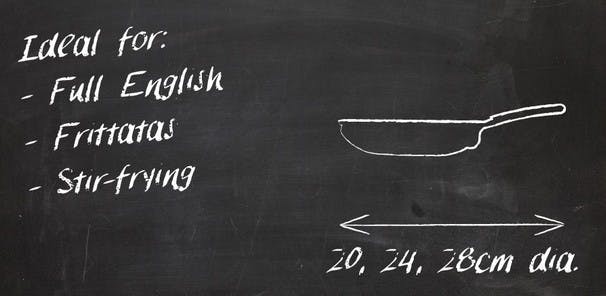 Ideal for:
- Full English
- Frittatas
- Stir-frying
20, 24, 28cm dia.